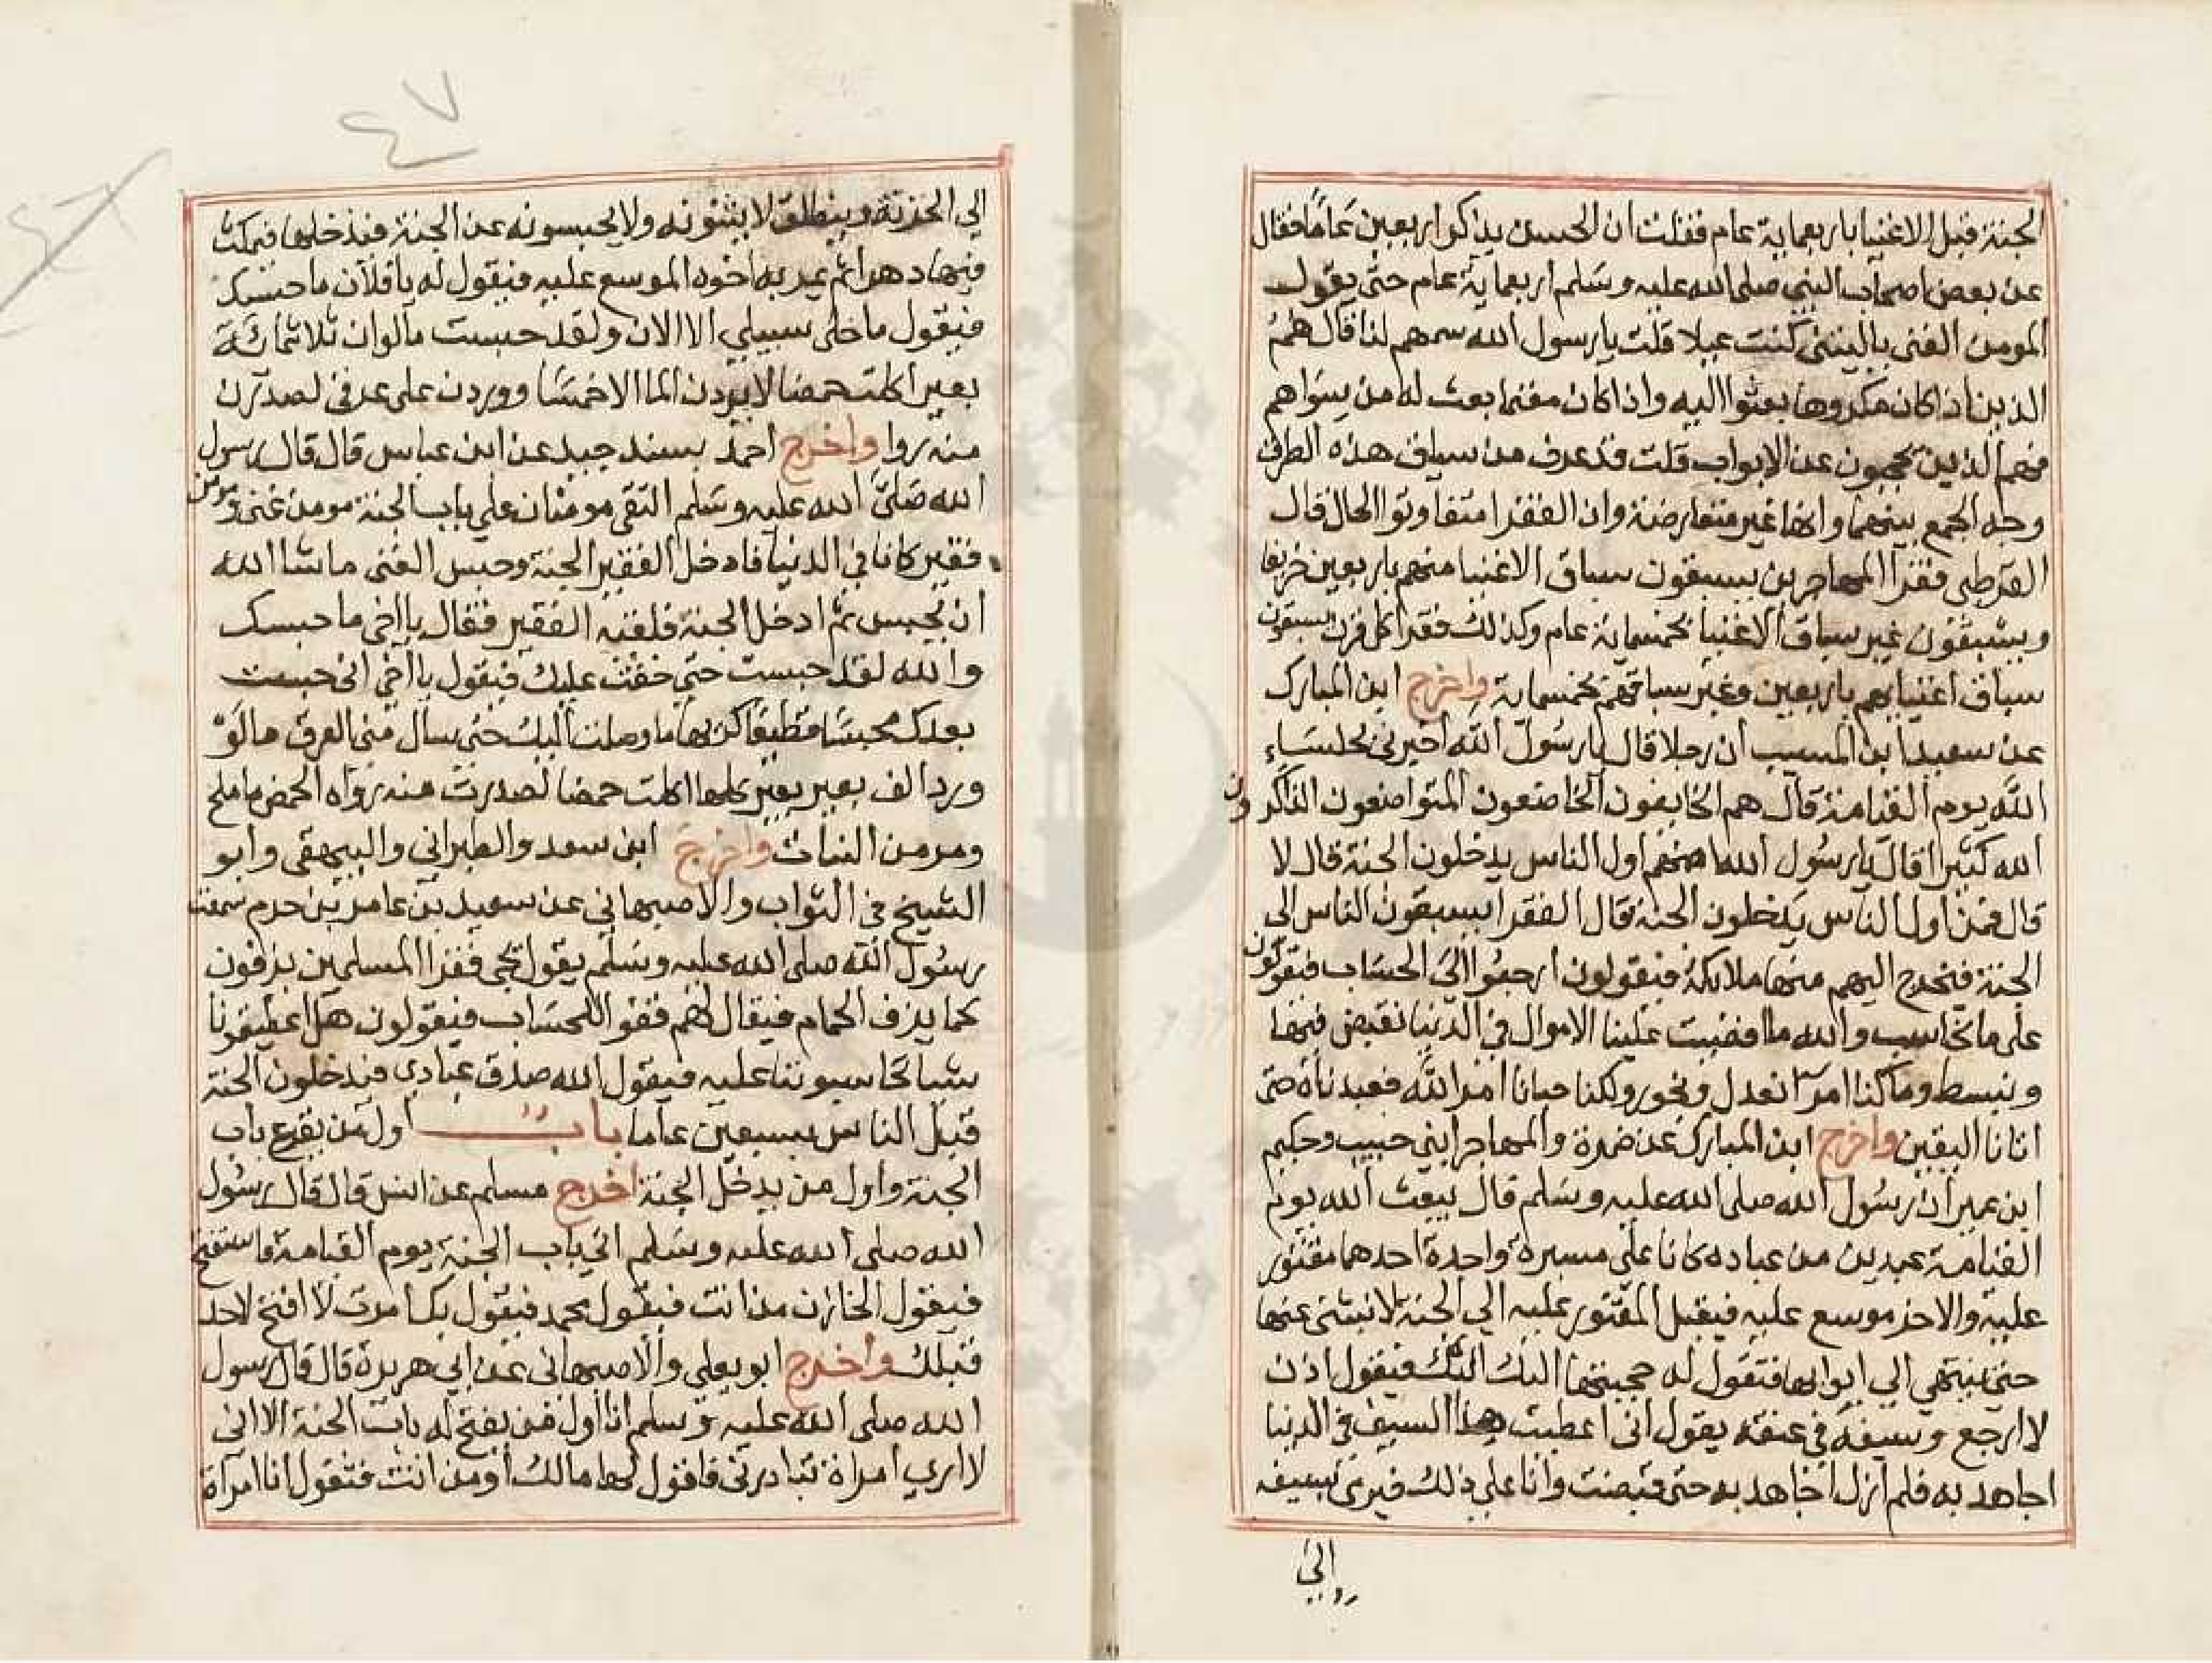 الجنة قبل الاغنيا باربعماية عام فقلت ان الحسن يذاكر اربعين عاما فقال
عن بعض اصحاب النبي صلى الله عليه وسلم اربعماية عام حتى يقول
المومن الغنى ياليتنى كنت عيلا قلت يا رسول الله سمهم لنا قال هم
الذين اذا كان مكروها بعثوا اليه واذا كان مغنما بعث له من سواهم
فهم الذين يحجبون عن الابواب قلت قد عرف من سياق هذه الطرق
وجه الجمع بينهما وانها غير متعارضة وان الفقرا متفاوتوا الحال قال
القرطبى فقرا المهاجرين يسبقون سباق الاغنيا منهم باربعين خريفا
ويسبقون غير سباق الاغنيا بخمسماية عام وكذلك فقرا كل قرن يسبقون
سباق اغنيايهم باربعين وغير سباقهم بخمسماية واخرج ابن المبارك
عن سعيد ابن المسيب ان رجلا قال يا رسول الله اخبرني بجلساء
الله يوم القيامة قال هم الخايفون الخاضعون المتواضعون الذاكرون
الله كثيرا قال يا رسول الله اهم اول الناس يدخلون الجنة قال لا
قال فمن اول الناس يدخلون الجنة قال الفقرا يسبقون الناس الى
الجنة فتخرج اليهم منها ملايكة فيقولون ارجعوا الى الحساب فيقولون
على ما نحاسب والله ما افضيت علينا الاموال في الدنيا نقبض فيها
ونبسط وما كنا امرآ نعدل ونجور ولكنا جانا امر الله فعبدناه حتى
اتانا اليقين واخرج ابن المبارك عن ضمرة والمهاجر ابني حبيب وحكيم
ابن عمير ان رسول الله صلى الله عليه وسلم قال يبعث الله يوم
القيامة عبدين من عباده كانا على مسيرة واحدة احدهما مقتور
عليه والاخر موسع عليه فيقبل المقتور عليه الي الجنة لا ينثنى عنها
حتى ينتهي الي ابوابها فتقول له حجبتها اليك اليك فيقول اذن
لا ارجع وسيفه في عنقه يقول انى اعطيت هذا السيف في الدنيا
اجاهد به فلم ازل اجاهد به حتى قبضت وانا على ذلك فيرمى بسيفه
الي
٤٧
الي الخزنة وينطلق لا يثنونه ولا يحبسونه عن الجنة فيدخلها فيمكث
فيها دهرا ثم يمر به اخوه الموسع عليه فيقول له يا فلان ما حبسك
فيقول ما خلى سبيلي الا الان ولقد حبست ما لو ان ثلاثمائة
بعير اكلت حمضا لا يردن الما الا خمسا ووردن على عرقى لصدرن
منه روا واخرج احمد بسند جيد عن ابن عباس قال قال رسول
الله صلى الله عليه وسلم التقى مومنان على باب الجنة مومن غنى ومومن
فقير كانا في الدنيا فادخل الفقير الجنة وحبس الغنى ما شا الله
ان يحبس ثم ادخل الجنة فلقيه الفقير فقال يا اخى ما حبسك
والله لقد حبست حتى خفت عليك فيقول يا اخي انى حبست
بعدك محبسا فظيعا كريها ما وصلت اليك حتى سال منى العرق ما لو
ورد الف بعير كلها اكلت حمضا لصدرت منه رواه الحمض ما ملح
ومر من النبات واخرج ابن سعد والطبراني والبيهقى وابو
الشيخ في الثواب والاصبهاني عن سعيد بن عامر بن حرم سمعت
رسول الله صلى الله عليه وسلم يقول يجى فقرا المسلمين يزفون
كما يزف الحمام فيقال لهم قفوا للحساب فيقولون هل اعطيتمونا
شيا تحاسبوننا عليه فيقول الله صدق عبادي فيدخلون الجنة
قبل الناس بسبعين عاما باب اول من يقرع باب
الجنة واول من يدخل الجنة اخرج مسلم عن انس قال قال رسول
الله صلى الله عليه وسلم اتي باب الجنة يوم القيامة فاستفتح
فيقول الخازن من انت فيقول محمد فيقول بك امرت لا افتح لاحد
قبلك واخرج ابو يعلى والاصبهانى عن ابي هريرة قال قال رسول
الله صلى الله عليه وسلم انا اول من يفتح له باب الجنة الا انى
لا اري امراة تبادرنى فاقول لها مالك او من انت فتقول انا امراة